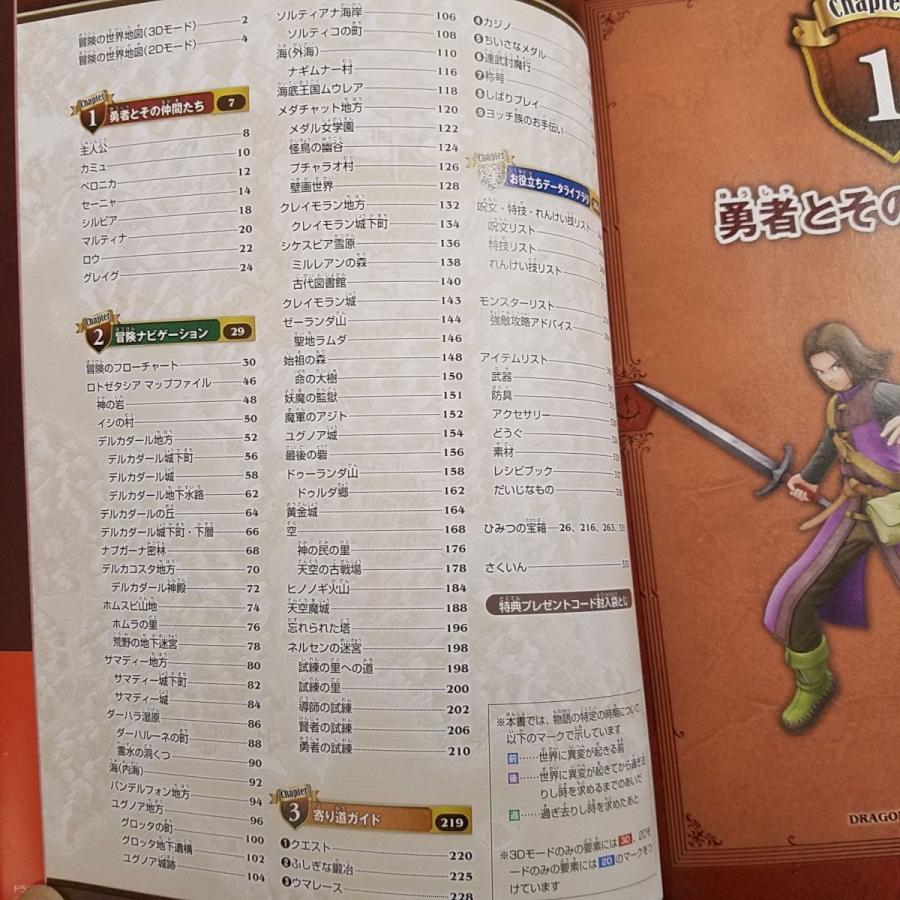 冒険の世界地図(3Dモード) 2
冒険の世界地図(2Dモード) 4
Chapter 1 勇者とその仲間たち 7
主人公 8
カミュ 10
ベロニカ 12
セーニャ 14
シルビア 18
マルティナ 20
ロウ 22
グレイグ 24
Chapter 2 冒険ナビゲーション 29
冒険のフローチャート 30
ロトゼタシア マップファイル 46
神の岩 48
イシの村 50
デルカダール地方 52
デルカダール城下町 56
デルカダール城 58
デルカダール地下水路 62
デルカダールの丘 64
デルカダール城下町・下層 66
ナプガーナ密林 68
デルカコスタ地方 70
デルカダール神殿 72
ホムスビ山地 74
ホムラの里 76
荒野の地下迷宮 78
サマディー地方 80
サマディー城下町 82
サマディー城 84
ダーハラ湿原 86
ダーハルーネの町 88
霊水の洞くつ 90
海(内海) 92
バンデルフォン地方 94
ユグノア地方 96
グロッタの町 100
グロッタ地下遺構 102
ユグノア城跡 104
ソルティアナ海岸 106
ソルティコの町 108
海(外海) 110
ナギムナー村 116
海底王国ムウレア 118
メダチャット地方 120
メダル女学園 122
怪鳥の幽谷 124
プチャラオ村 126
壁画世界 128
クレイモラン地方 132
クレイモラン城下町 134
シケスビア雪原 136
ミルレアンの森 138
古代図書館 140
クレイモラン城 143
ゼーランダ山 144
聖地ラムダ 146
始祖の森 148
命の大樹 150
妖魔の監獄 151
魔軍のアジト 152
ユグノア城 154
最後の砦 156
ドゥーランダ山 158
ドゥルダ郷 162
黄金城 164
空 168
神の民の里 176
天空の古戦場 178
ヒノノギ火山 184
天空魔城 188
忘れられた塔 196
ネルセンの迷宮 198
試練の里への道 198
試練の里 200
導師の試練 202
賢者の試練 206
勇者の試練 210
Chapter 3 寄り道ガイド 219
❶クエスト 220
❷ふしぎな鍛冶 225
❸ウマレース 228
❹カジノ
❺ちいさなメダル
❻連武討魔行
❼称号
❽しばりプレイ
❾ヨッチ族のお手伝い
Chapter お役立ちデータライブラリ
呪文・特技・れんけい技リスト
呪文リスト
特技リスト
れんけい技リスト
モンスターリスト
強敵攻略アドバイス
アイテムリスト
武器
防具
アクセサリー
どうぐ
素材
レシピブック
だいじなもの
ひみつの宝箱 26、216、263、
さくいん
特典プレゼントコード封入袋とじ
※本書では、物語の特定の時期について
以下のマークで示しています
前……世界に異変が起きる前
後……世界に異変が起きてから過ぎ去
りし時を求めるまでのあいだ
過……過ぎ去りし時を求めたあと
※3Dモードのみの要素には3D、2Dモ
ードのみの要素には2Dのマークをつ
けています
Chapter
1
勇者とその
DRAGON